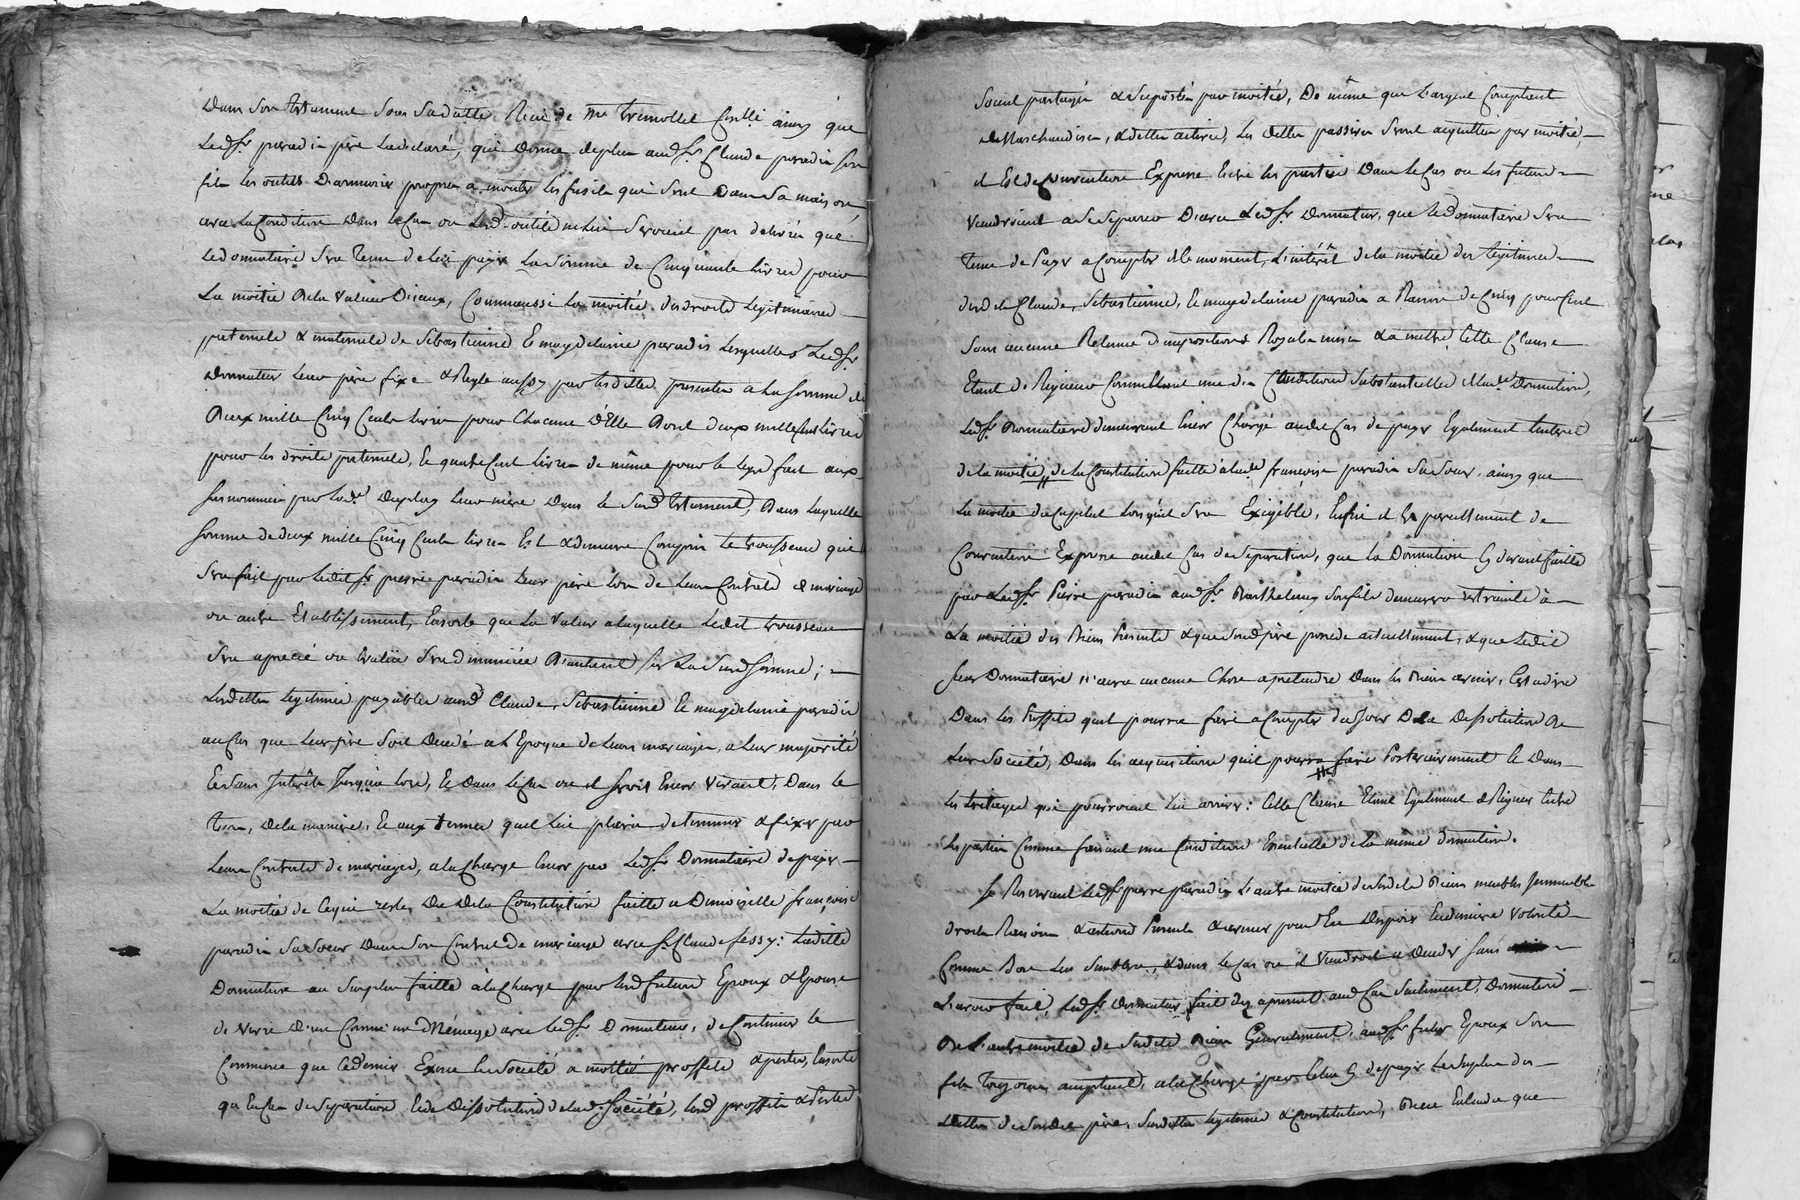 Dans son testament sous sa datte Reçu de me tremollet Conllr ainsy que
Ledsr paradis père La déclaré, qui donne deplus audsr Claude paradis son
fils les outils D'armurier propres a monter les fusils qui sont dans sa maison,
avec La Condition Dans le Cas ou Lesd. outils ne lui seroient pas delivrés que
Le donnataire sera tenu de lui payer La somme de Cinquante Livres pour
La moitié de la valeur Diceux, Comm'aussi La moitié des droits Legitimaires
paternels & maternels de Sébastienne Et magdelaine paradis Lesquelles Ledsr
Donnateur Leur père fixe & Regle aussy par lesdittes presentes a la somme de
Deux mille Cinq Cents Livres pour Chacune d'Elle Dont deux mille Cent Livres
pour les droits paternels, Et quatre Cent Livres de même pour le Legs fait aux
susnommées par lade Leur mère Dans le susd testament, Dans laquelle
somme de deux mille Cinq Cents livres Est & demeure Compris le trousseau qui
sera fait par Ledit sr pierre paradis Leur père lors de Leurs Contrats de mariage
ou autre Etablissement, Ensorte que La Valeur a laquelle Ledit trousseau
sera aprecié ou Evalué sera diminuée D'autant sur La susd somme;
Lesdittes Legitimes payables auxd Claude, Sébastienne Et magdelaine paradis
au Cas que Leur père soit Décedé a L'Epoque de Leurs mariages, a leur majorité
Et sans Interêts Jusques lors, Et Dans le Cas ou il seroit Encor vivant, Dans le
tems, de la manière, Et aux termes quil Lui plaira determiner & fixer par
Leurs Contrats de mariages, a la Charge Encor par Ledsr Donnataire de payer
La moitié de Ce qui reste Du De la Constitution faitte a Demoiselle françoise
paradis sa soeur Dans son Contrat De mariage avec sr Claude fessy: Laditte
Donnation au surplus faitte à la Charge par lesd futurs Epoux & Epouse
de vivre D'un Commun Ménage avec Ledsr Donnateur, de Continuer le
Commerce que Ce dernier Exerce En Société a moitié proffits & pertes, Ensorte
qu'En Cas de separation Et de Dissolution de lad. Société, Lesd proffits & pertes
Soient partagés & suportés par moitié, De même que L'argent Comptant
Marchandises, & dettes actives, Les dettes passives seront acquittées par moitié,
il Est de Convention Expresse Entre les parties Dans le Cas ou les futurs
voudroient se separer D'avec Ledsr Donnateur, que le donnataire sera
tenu de payer a Compter de Ce moment, L'intérêt de la moitié des legitimes
desd Claude, Sébastienne, Et magdelaine paradis a Raison de Cinq pour Cent
sans aucune Retenue d'impositions Royales mises & a mettre, Cette Clause
Etant de Rigueur Comm'Etant une des Conditions substantielles de lade Donnation,
Ledsr Donnataire demeurant Encor Chargé audit Cas de payer Egalement linterêt
de la moitié de la Constitution faitte à lade françoise paradis sa soeur, ainsy que
La moitié du Capital Lorsquil sera Exigible, Enfin il Est pareillement de
Convention Expresse audit Cas de separation, que la Donnation Cy devant faitte
par Ledsr Pierre paradis audsr Barthelemy son fils demeurera restrainte à
La moitié des Biens Presents & que sond père possede actuellement, & que Ledit
sieur Donnataire n'aura aucune Chose a pretendre Dans les Biens avenir, Cest a dire
Dans les Proffits quil pourra faire a Compter du Jour De la Dissolution de
Leur Société, Dans les acquisitions quil pourra faire Posterieurement Et Dans
les heritages qui pourroient lui arriver: Cette Clause Etant Egalement de Rigueur Entre
les parties Comme faisant une Condition Essentielle de la même donnation.
Se Reservant Ledsr pierre paradis L'autre moitié de susdits Biens meubles Immeubles
droits Raisons & actions Presents & avenir pour En Disposer En derniere volonté
Comme Bon Lui semblera, & dans le Cas ou il viendroit a Deceder sans
L'avoir fait, Ledsr Donnateur fait des apresent aud Cas seulement, Donnation
De L'autre moitié de susdits Biens Generalement, audsr futur Epoux son
fils toujours acceptant, a la Charge par Celui Cy de payer Le surplus des
dettes de sondit père, susdittes Legitimes & Constitution, Bien Entendu que